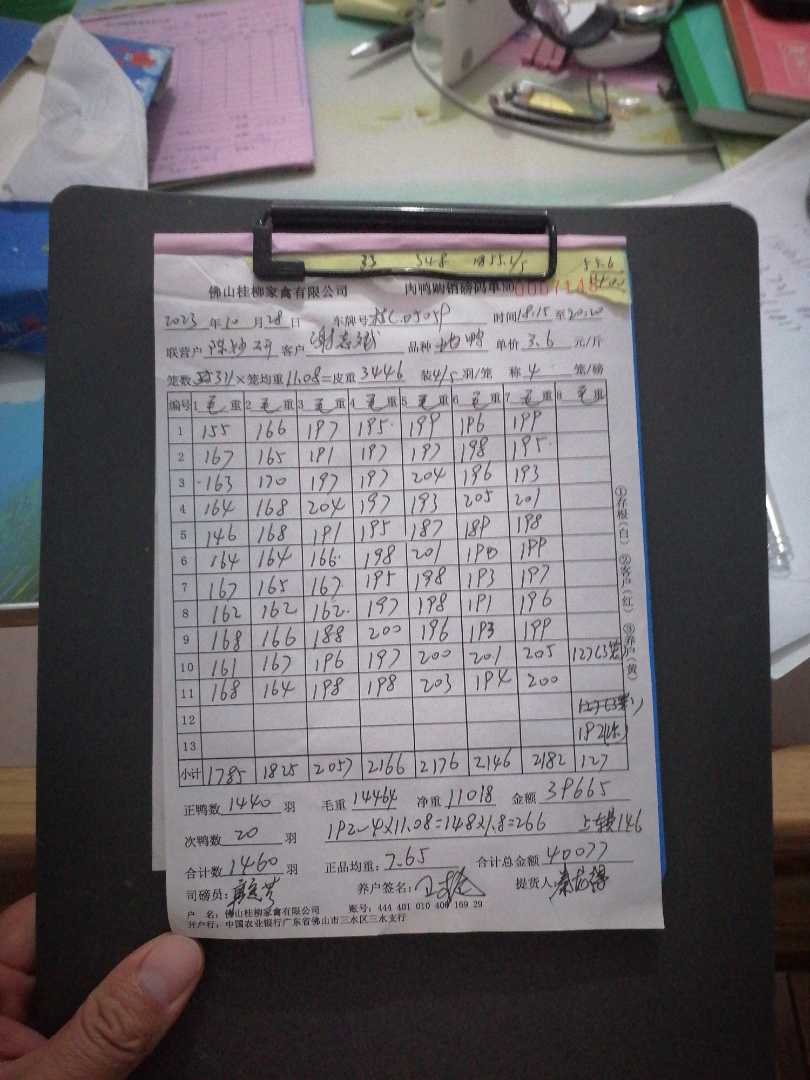 33 348 1855.1/5 55.6
佛山桂柳家禽有限公司 肉鸭购销磅码单 0007148
2023年10月28日 车牌号 时间18:15至20:20
联营户 客户谢志斌 品种 鸭 单价3.6元/斤
笼数311×笼均重11.08=皮重3446 装4/5羽/笼 称4笼/磅
编号 1毛重 2毛重 3毛重 4毛重 5毛重 6毛重 7毛重 8毛重
1 155 166 197 195 199 196 199
2 167 165 191 197 197 198 195
3 163 170 197 197 204 196 193
4 164 168 204 197 193 205 201
5 146 168 191 195 187 189 198
6 164 164 166 198 201 190 199
7 167 165 167 195 198 193 197
8 162 162 162 197 198 191 196
9 168 166 188 200 196 193 199
10 161 167 196 197 200 201 205 127(3笼)
11 168 164 198 198 203 194 200
12 127(3笼)
13 192(次)
小计 1785 1825 2057 2166 2176 2146 2182 127
正鸭数1440羽 毛重14464 净重11018 金额39665
次鸭数20羽 192-4×11.08=148×1.8=266 上车费146
合计数1460羽 正品均重:7.65 合计总金额40077
司磅员: 养户签名: 提货人:
户 名:佛山桂柳家禽有限公司 账号:444 401 010 400 169 29
开户行:中国农业银行广东省佛山市三水区三水支行
①存根(白) ②客户(红) ③养户(黄)